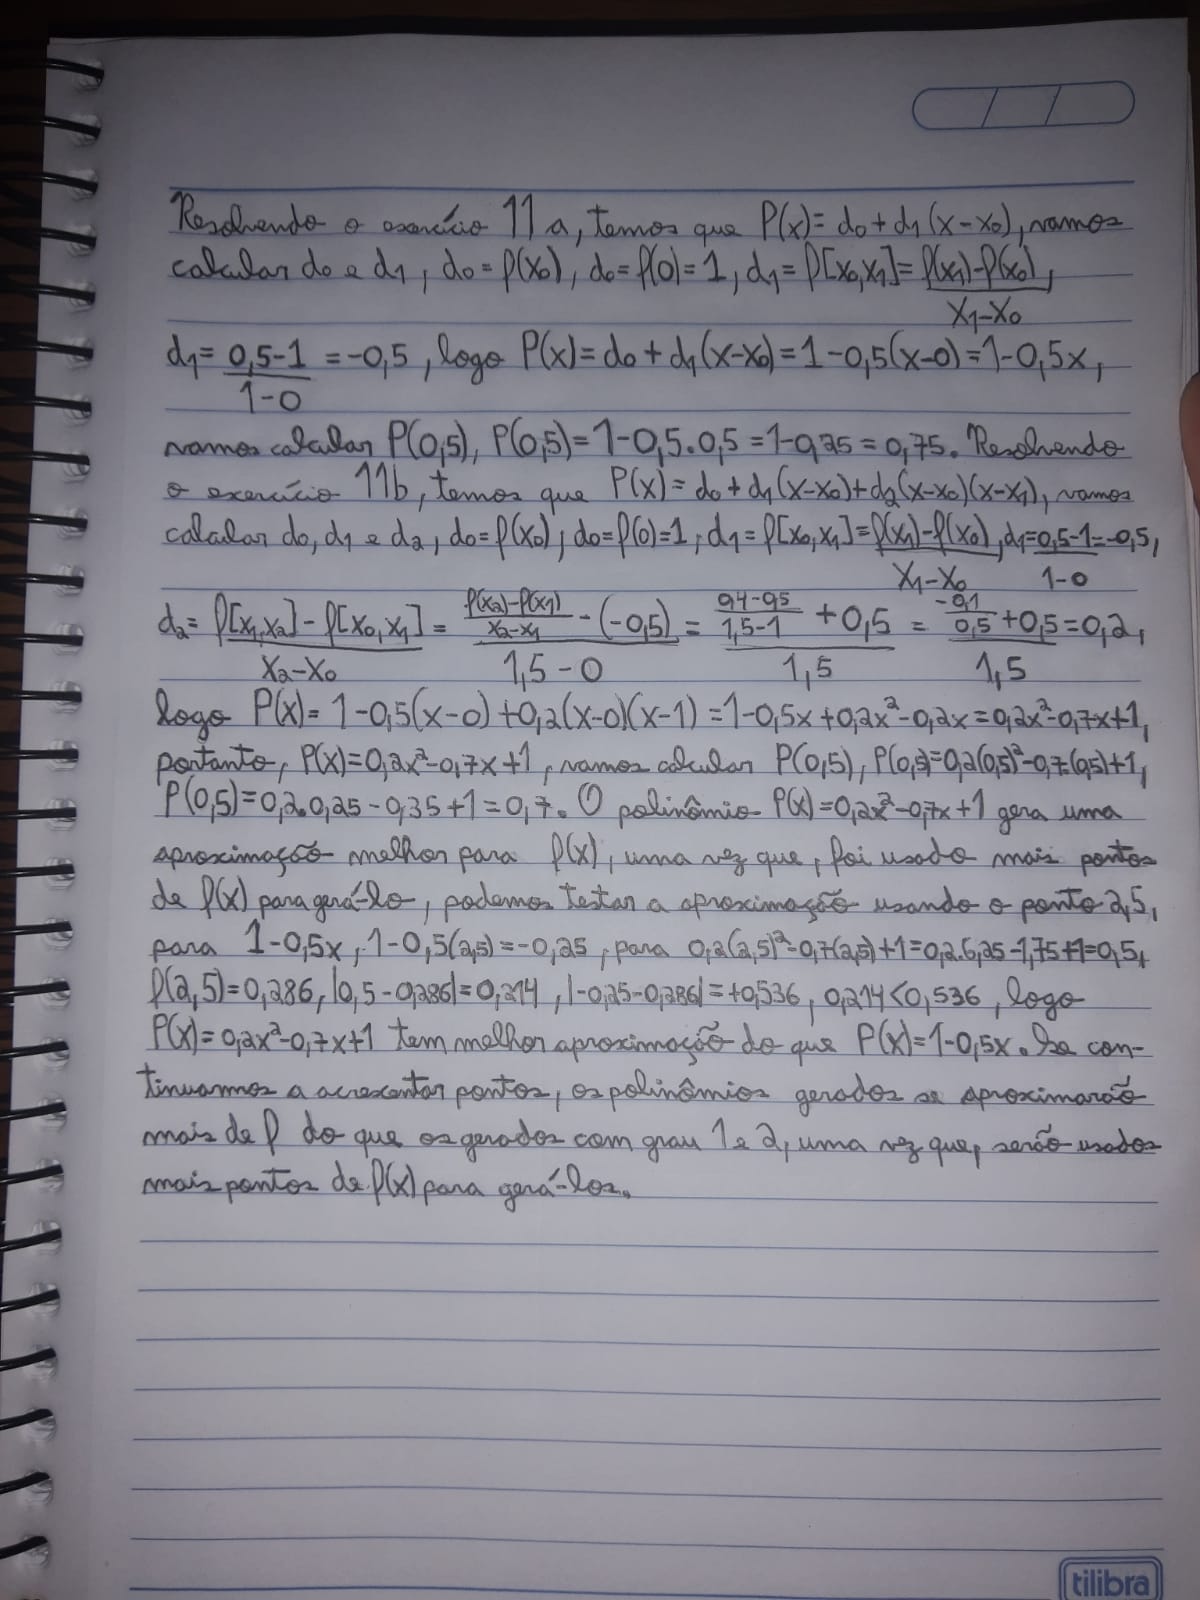 Resolvendo o exercício 11 a, temos que P(x)= d0 + d1(x-x0), vamos
calcular d0 e d1, d0 = f(x0), d0 = f(0) = 1, d1 = f[x0,x1] = f(x1)-f(x0),
x1-x0
d1 = 0,5-1 = -0,5, logo P(x) = d0 + d1(x-x0) = 1-0,5(x-0) = 1-0,5x,
1-0
vamos calcular P(0,5), P(0,5) = 1-0,5.0,5 = 1-0,25 = 0,75. Resolvendo
o exercício 11b, temos que P(x) = d0 + d1(x-x0)+d2(x-x0)(x-x1), vamos
calcular d0, d1 e d2, d0 = f(x0), d0 = f(0) = 1, d1 = f[x0,x1] = f(x1)-f(x0), d1 = 0,5-1 = -0,5,
x1-x0 1-0
d2 = f[x1,x2] - f[x0,x1] = f(x2)-f(x1) / x2-x1 - (-0,5) = 0,4-0,5 / 1,5-1 + 0,5 = -0,1 / 0,5 + 0,5 = 0,2,
x2-x0 1,5-0 1,5 1,5
logo P(x) = 1-0,5(x-0) + 0,2(x-0)(x-1) = 1-0,5x+0,2x²-0,2x = 0,2x²-0,7x+1,
portanto, P(x) = 0,2x²-0,7x+1, vamos calcular P(0,5), P(0,5)=0,2(0,5)²-0,7.(0,5)+1,
P(0,5) = 0,2.0,25-0,35+1 = 0,7. O polinômio P(x)=0,2x²-0,7x+1 gera uma
aproximação melhor para f(x), uma vez que, foi usado mais pontos
de f(x) para gerá-lo, podemos testar a aproximação usando o ponto 2,5,
para 1-0,5x, 1-0,5(2,5) = -0,25, para 0,2(2,5)²-0,7(2,5)+1=0,2.6,25-1,75+1=0,5,
f(2,5)=0,286, |0,5-0,286|=0,214, |-0,25-0,286|=+0,536, 0,214<0,536, logo
P(x)=0,2x²-0,7x+1 tem melhor aproximação do que P(x)=1-0,5x. Se con-
tinuarmos a acrescentar pontos, os polinômios gerados se aproximarão
mais de f do que os gerados com grau 1 e 2, uma vez que, serão usados
mais pontos de f(x) para gerá-los.
tilibra